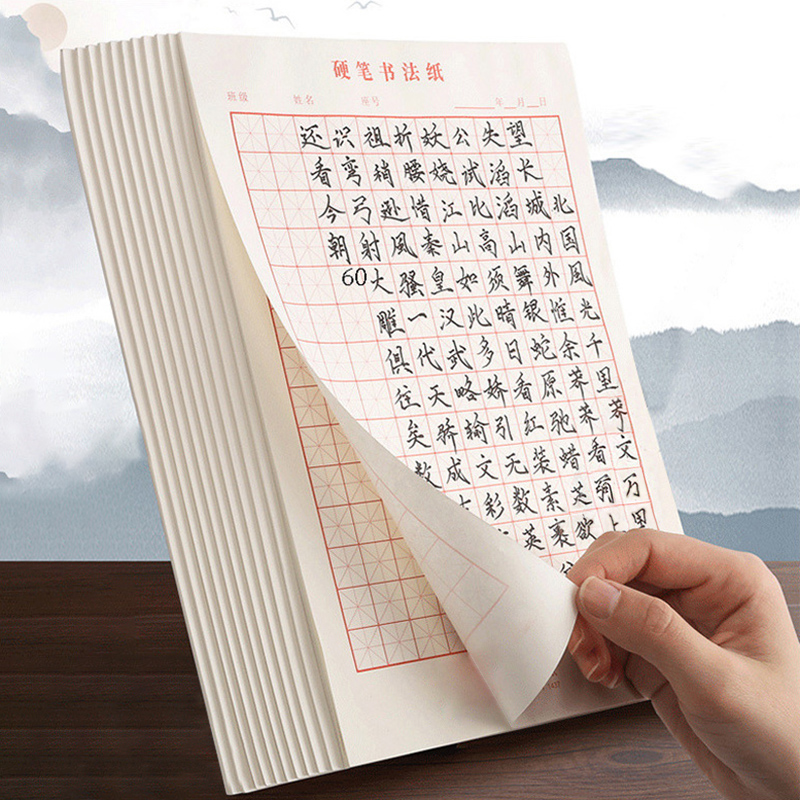 硬笔书法纸
班级 姓名 座号 年 月 日
北国風光千里
望长城内外惟余莽莽看
失滔滔山舞银蛇原驰蜡芝欲
公试比高须晴日看红装素裹
妖娆江山如此多娇引无数英
折腰惜秦皇汉武略输文彩
祖稍逊風骚一代天骄成大
识弯弓射大雕俱往矣数
还看今朝60